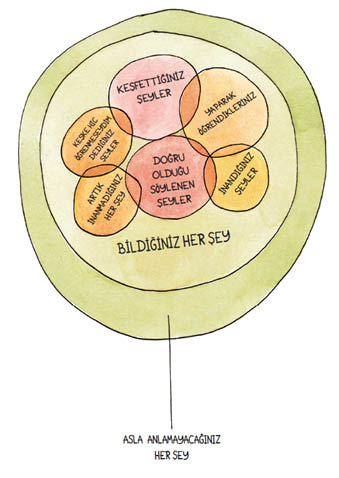 KEŞFETTİĞİNİZ
ŞEYLER
YAPARAK
ÖĞRENDİKLERİNİZ
KEŞKE HİÇ
ÖĞRENMESEYDİM
DEDİĞİNİZ
ŞEYLER
DOĞRU
OLDUĞU
SÖYLENEN
ŞEYLER
İNANDIĞINIZ
ŞEYLER
ARTIK
İNANMADIĞINIZ
HER ŞEY
BİLDİĞİNİZ HER ŞEY
ASLA ANLAMAYACAĞINIZ
HER ŞEY